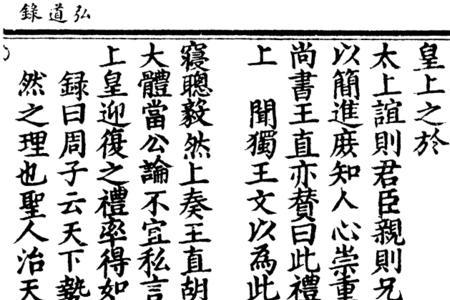 弘道錄
皇上之於
太上誼則君臣親則兄
以簡進庻知人心崇重
尚書王直亦贊曰此禮
上　聞獨王文以為此
寢聰毅然上奏王直胡
大體當公論不宜私言
上皇迎復之禮率得如
録曰周子云天下勢
然之理也聖人治天